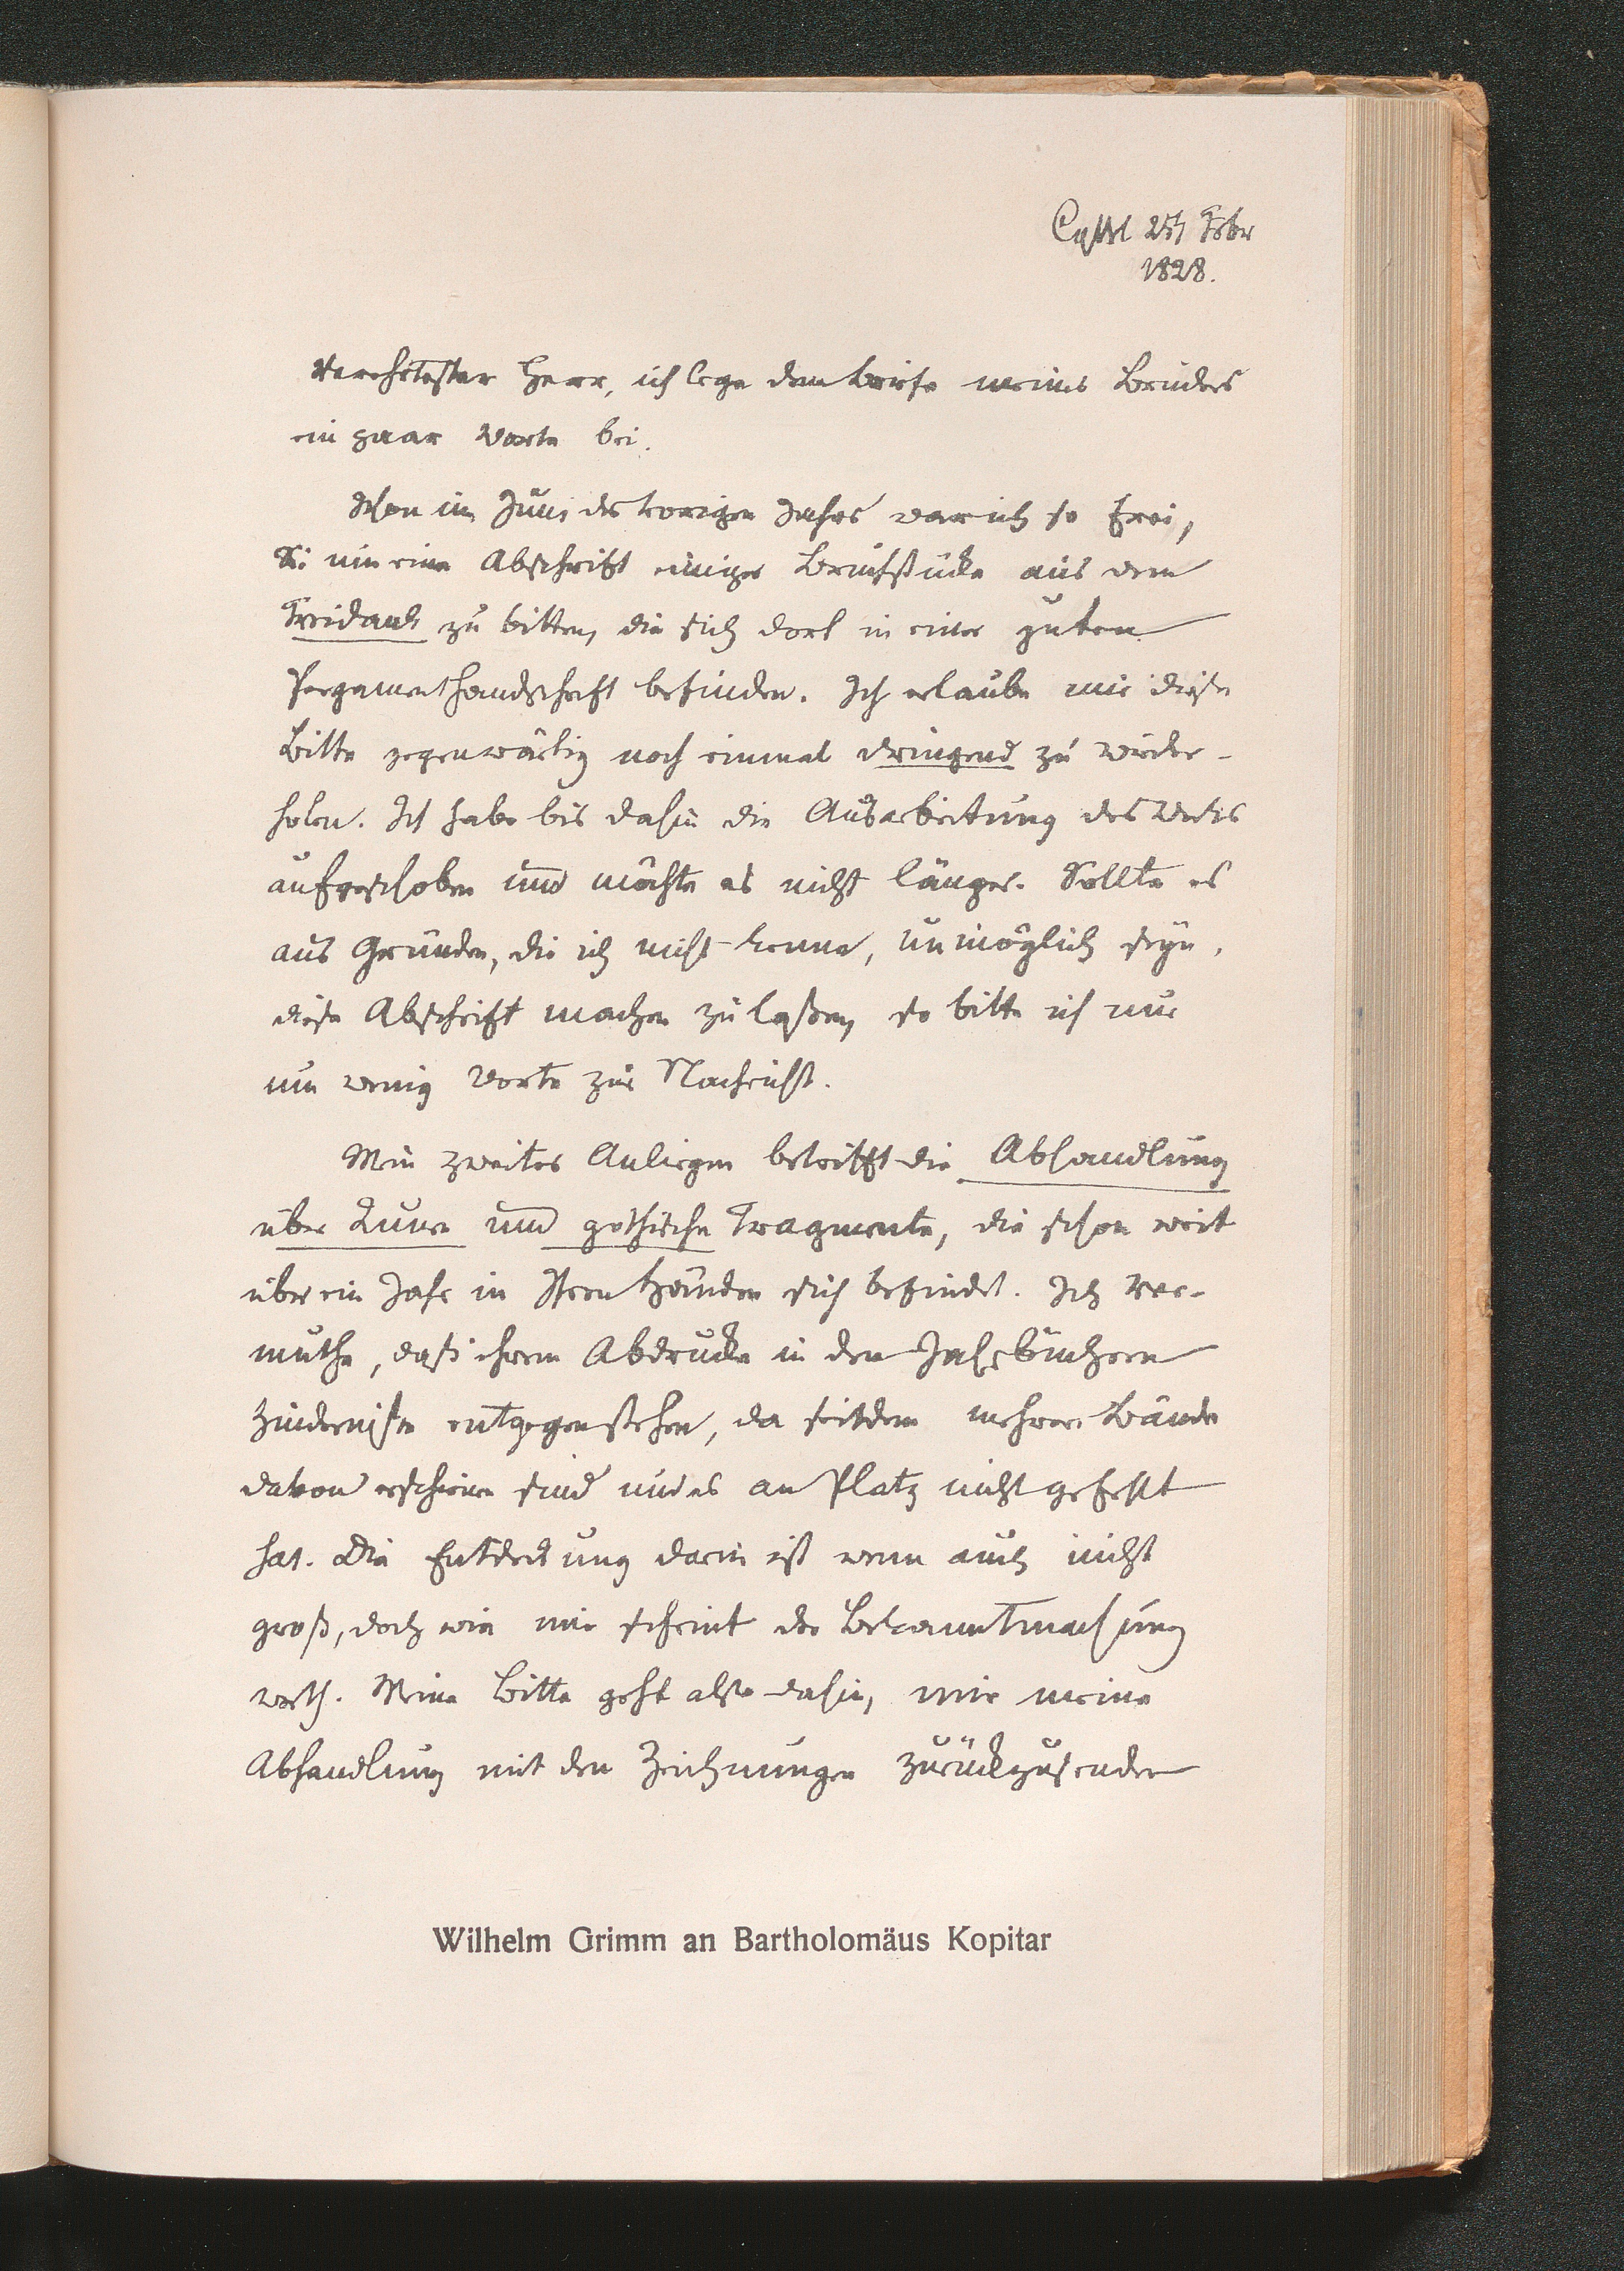 Cassel 25t Febr
1828.
Verehrtester Herr, ich lege dem briefe meines Bruders
ein paar Worte bei.
Schon im Juni des vorigen Jahres war ich so frei,
Sie um eine Abschrift einiger Bruchstücke aus dem
Freidank zu bitten, die sich dort in einer guten
Pergamenthandschrift befinden. Ich erlaube mir diese
Bitte gegenwärtig noch einmal dringend zu wieder-
holen. Ich habe bis dahin die Ausarbeitung des Werkes
aufgeschoben und möchte es nicht länger. Sollte es
aus Gründen, die ich nicht kenne, unmöglich seyn,
diese Abschrift machen zu laßen, so bitte ich nur
um wenig Worte zur Nachricht.
Mein zweites Anliegen betrifft die Abhandlung
über Runen und gothische Fragmente, die schon weit
über ein Jahr in Ihren Händen sich befindet. Ich ver-
muthe, daß ihrem Abdrucke in den Jahrbüchern
Hinderniße entgegenstehen, da seitdem mehrere Bände
davon erschienen sind und es an Platz nicht gefehlt
hat. Die Entdeckung darin ist wenn auch nicht
groß, doch wie mir scheint der Bekanntmachung
werth. Meine Bitte geht also dahin, mir meine
Abhandlung mit den Zeichnungen zurückzusenden
Wilhelm Grimm an Bartholomäus Kopitar